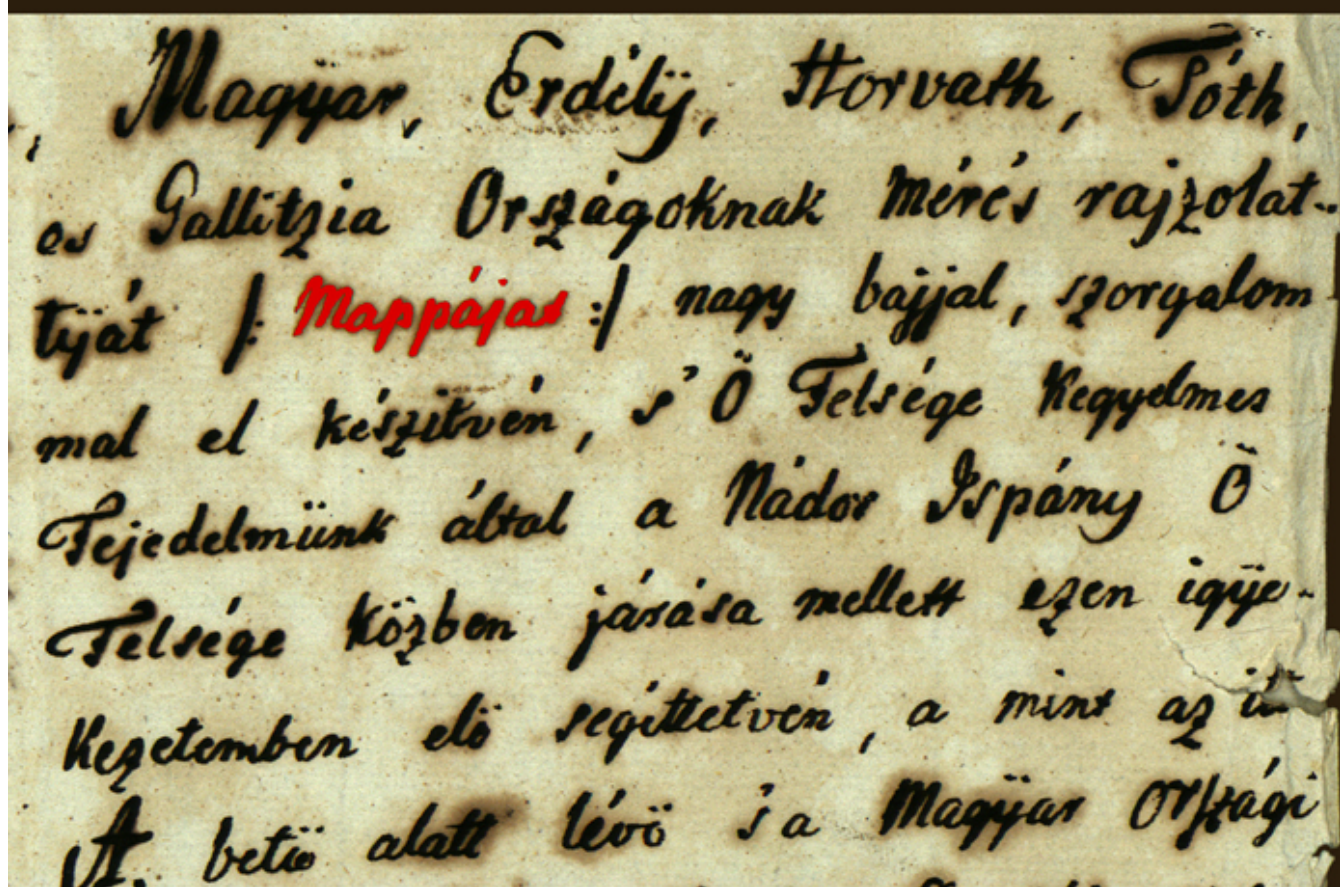 Magÿar, Erdélÿ, Horvath, Tóth,
es Gallitzia Országoknak mérés rajzolat-
tÿát /: Mappájat :/ nagy bajjal, szorgalom
mal el készitvén, s' Ö Felsége Kegyelmes
Fejedelmünk által a Nádor Ispány Ö
Felsége közben járása mellett ezen igÿe-
kezetemben elö segéttetvén, a mint az itt
A. betü alatt lévö 's a Magÿar Országi